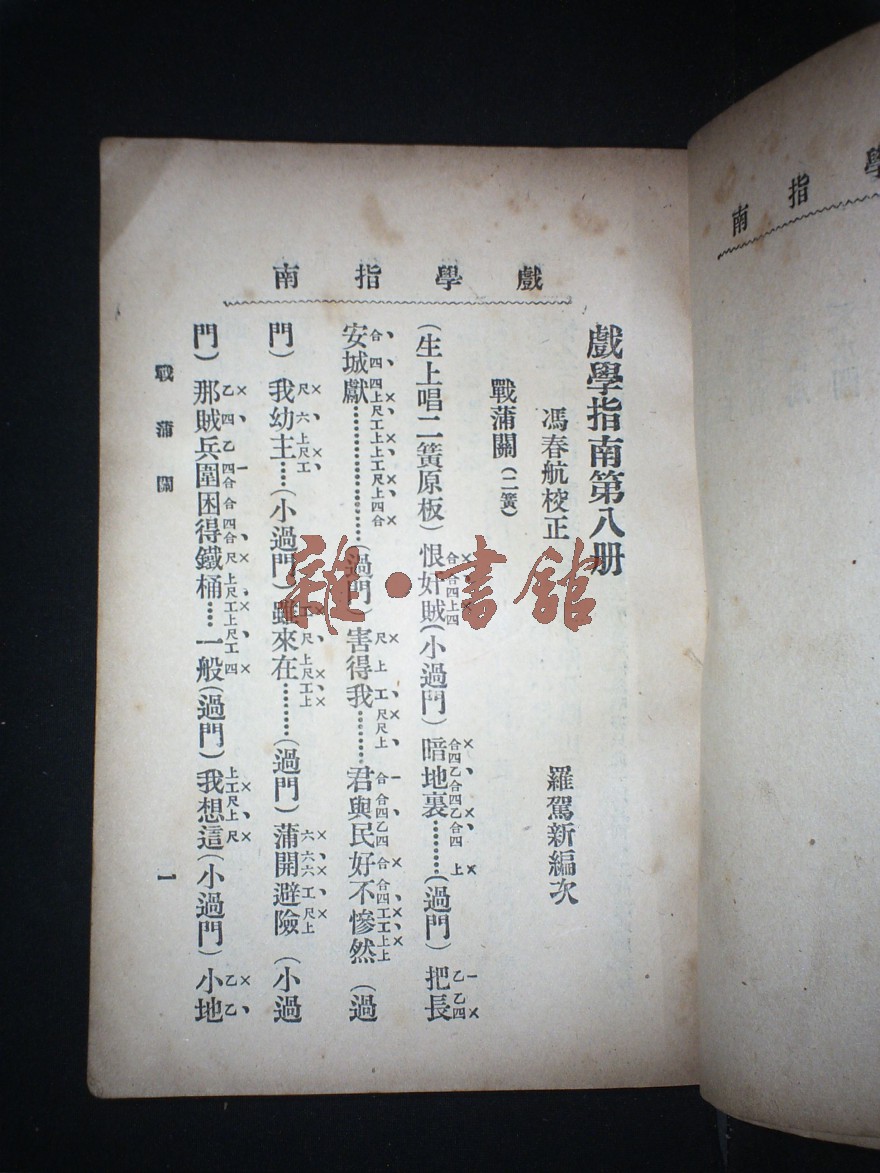 戲學指南
戲學指南第八册
馮春航校正　羅駕新編次
戰蒲關（二簧）
（生上唱二簧原板）恨奸賊（小過門）暗地裏………（過門）把長
安城獻………………（過門）害得我………君與民好不慘然（過
門）我幼主…（小過門）雖來在………（過門）蒲開避險（小過
門）那賊兵圍困得鐵桶…一般（過門）我想這（小過門）小地
戰蒲關
一
學指南
雜·書館